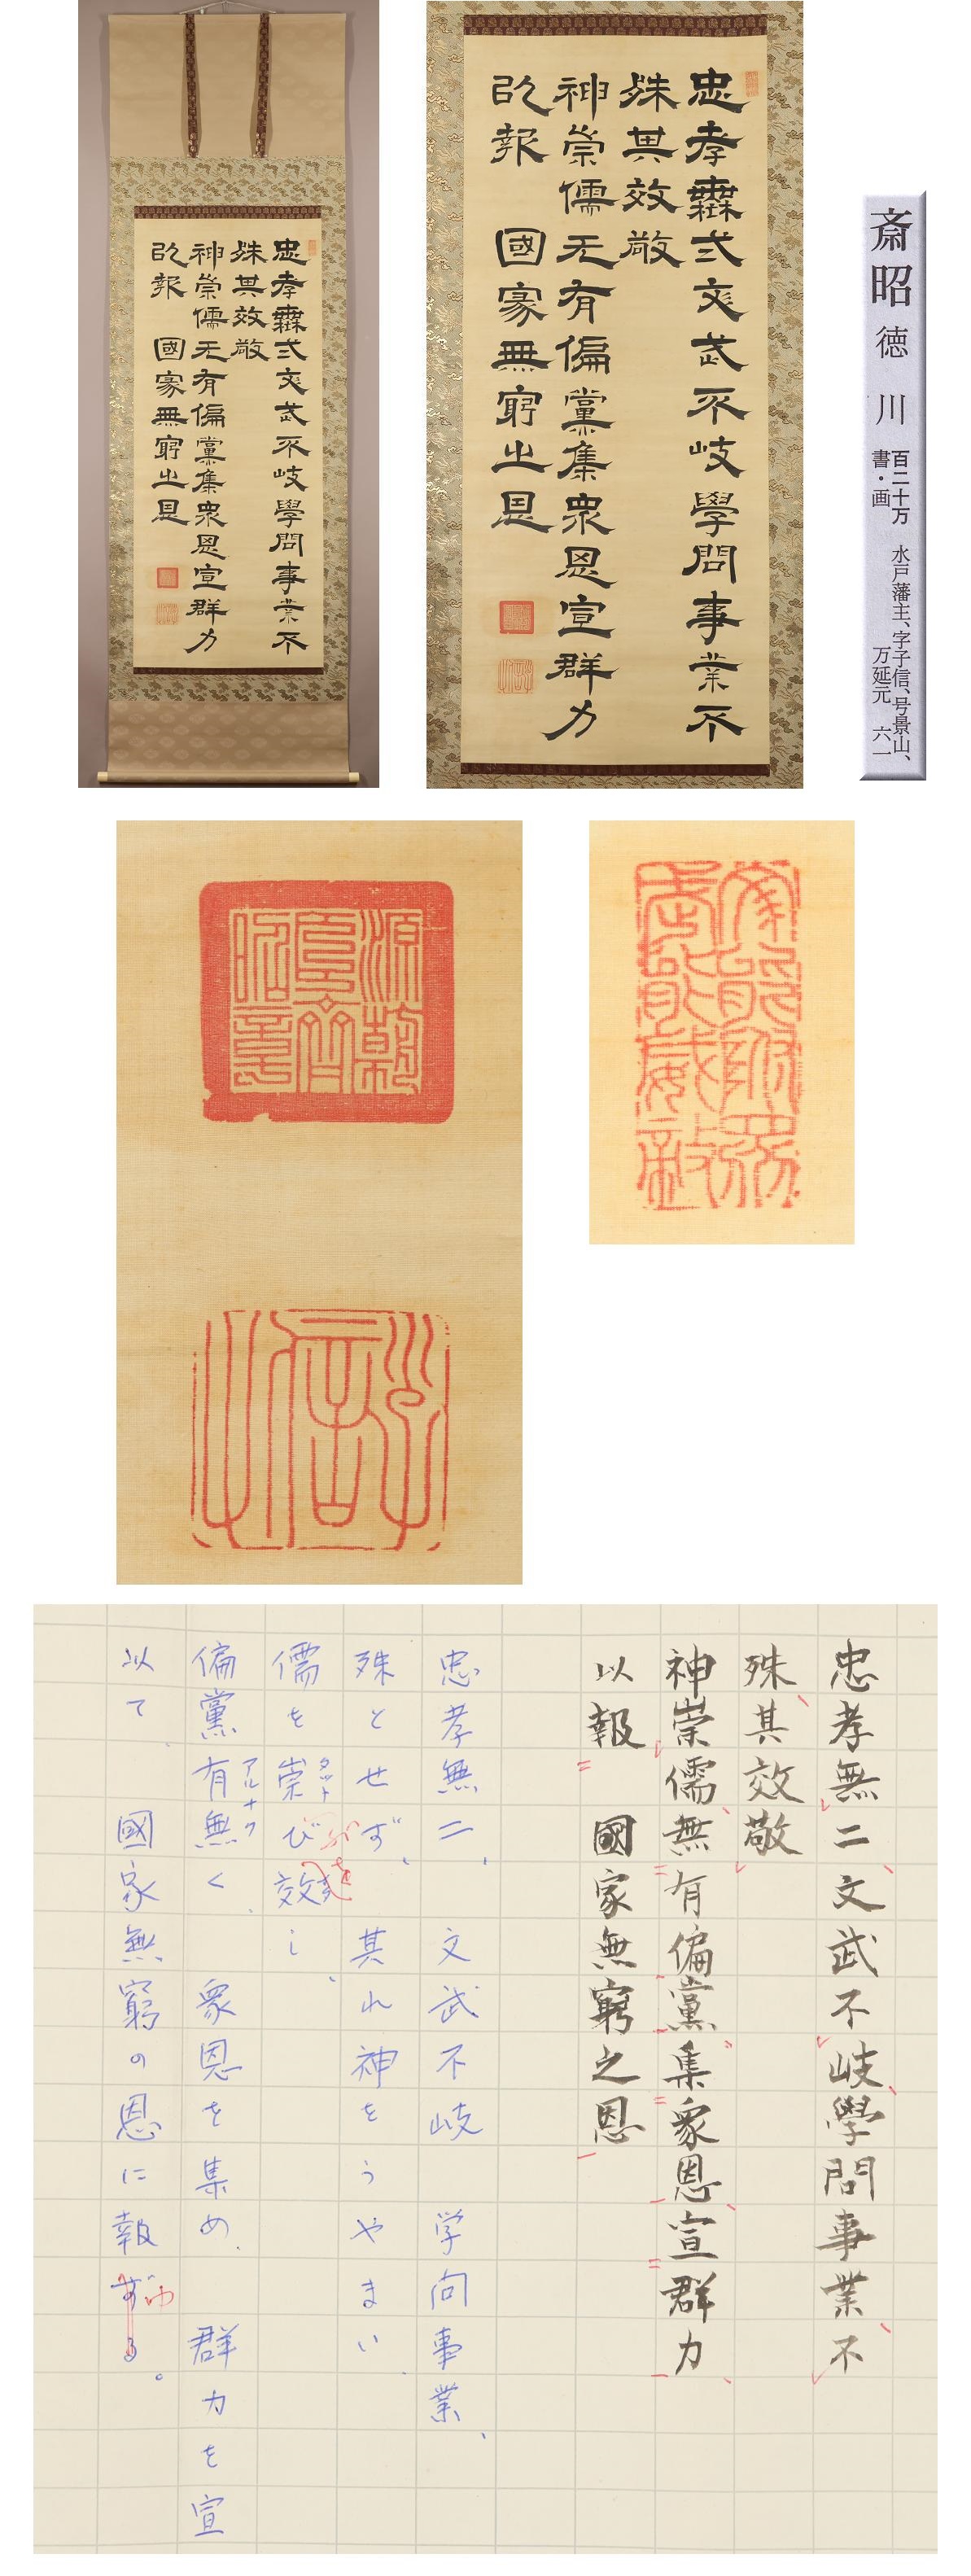 忠孝無弍文武不岐學問事業不
殊其效敬
神崇儒无有偏黨集衆恩宣群力
以報 國家無窮之恩
忠孝無弍文武不岐學問事業不
殊其效敬
神崇儒无有偏黨集衆恩宣群力
以報 國家無窮之恩
斎昭 徳川
百二十万 水戸藩主、字子信、号景山、
書・画 万延元 六一
忠孝無二文武不岐學問事業不
殊其效敬
神崇儒無有偏黨集衆恩宣群力
以報 國家無窮之恩
忠孝無二、 文武不岐 学问事業、
殊とせず、 其れ神をうやまい、
儒を崇び效し、
タット
偏黨有無く、 衆恩を集め、 群力を宣
アルナク
以て、 國家無窮の恩に報ずる。
ゆ